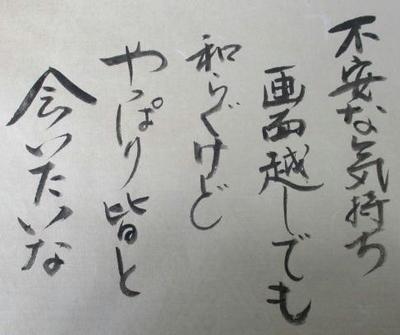 不安な気持ち
画面越しでも
和らぐけど
やっぱり皆と
会いたいな